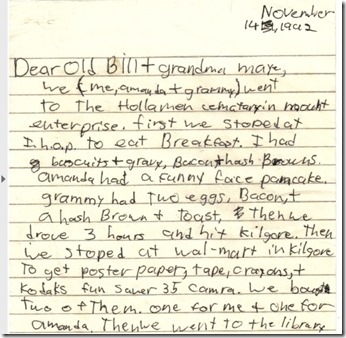 November
14, 1992
Dear Old Bill + grandma mare,
we (me, amanda + grammy) went
to The Hollamen cematary in mount
enterprise. first we stoped at
I.h.o.p. to eat Breakfast. I had
biscuits + gravy, Bacon + hash Browns.
amanda had a funny face pancake.
grammy had Two eggs, Bacon, +
a hash Brown + Toast, Then we
drove 3 hours and hit Kilgore. Then
we stoped at wal-mart in Kilgore
To get poster paper, tape, crayons, +
Kodaks fun saver 35 camra. We bought
Two of Them. one for me + one for
amanda. Then we went to the library